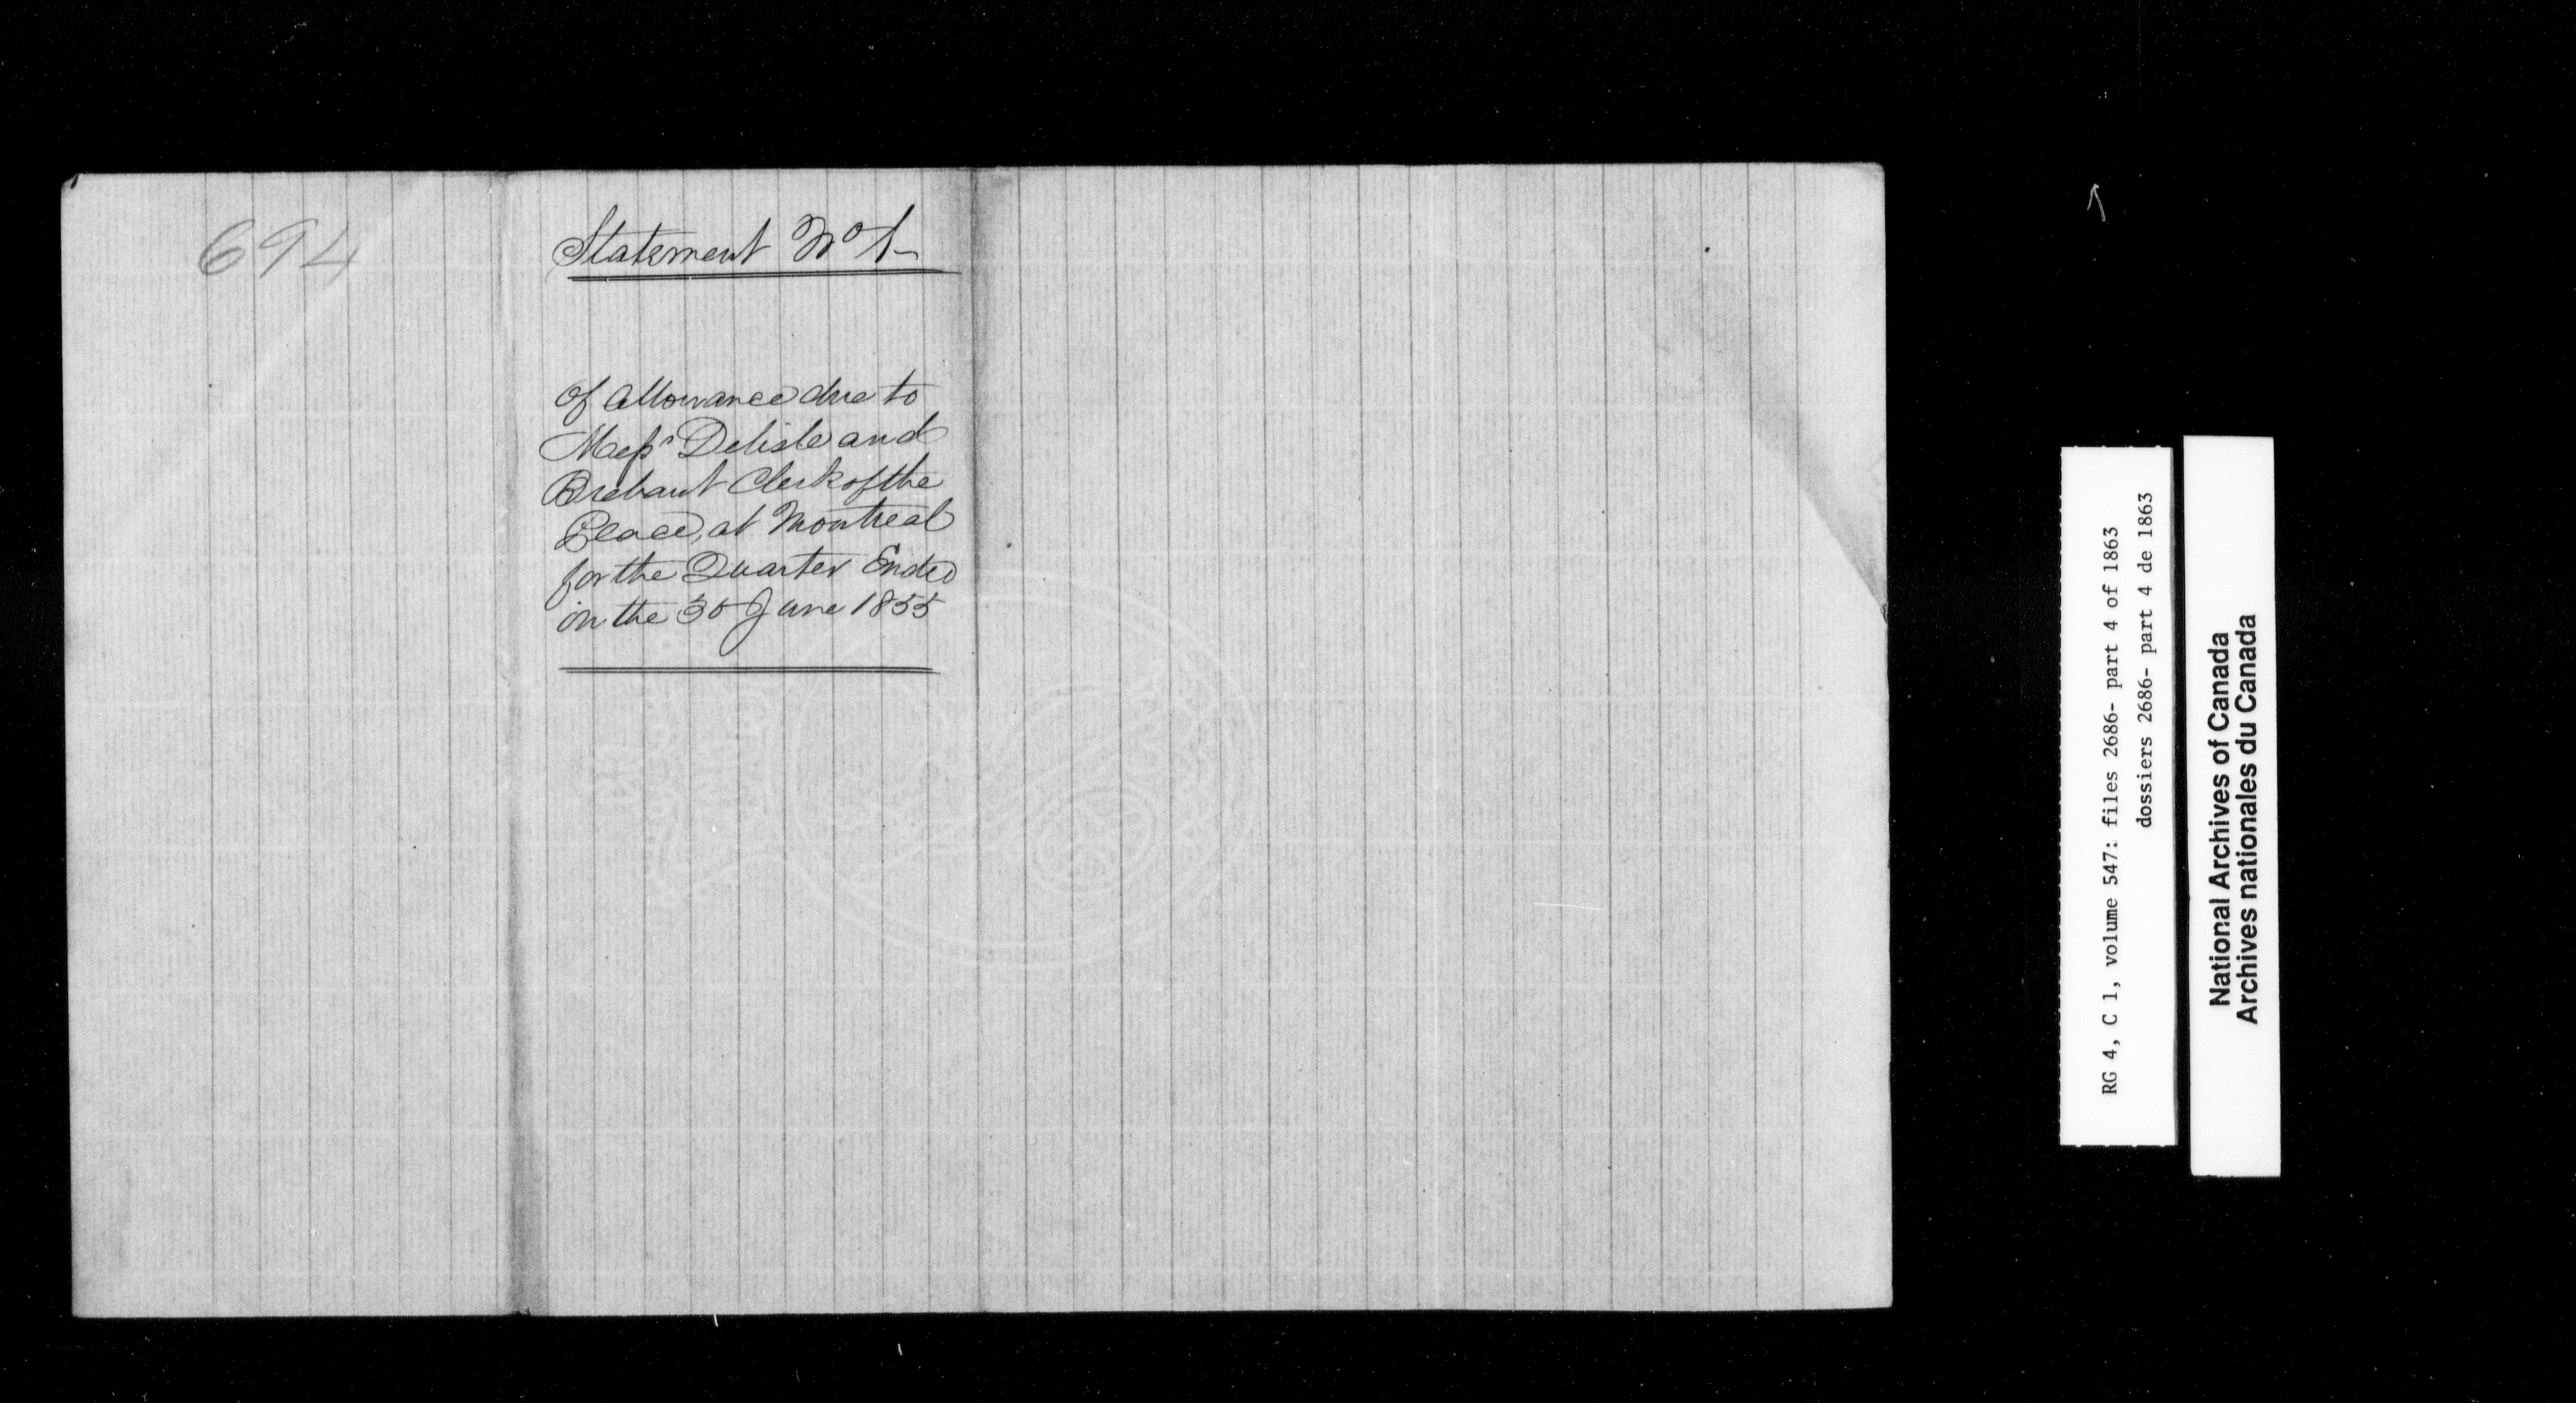 694
Statement No 1
Of Allowance due to
Messrs Delisle and
Brehaut Clerk of the
Peace, at Montreal
for the Quarter Ended
on the 30 June 1855
RG 4, C 1, volume 547: files 2686- part 4 of 1863
dossiers 2686- part 4 de 1863
National Archives of Canada
Archives nationales du Canada